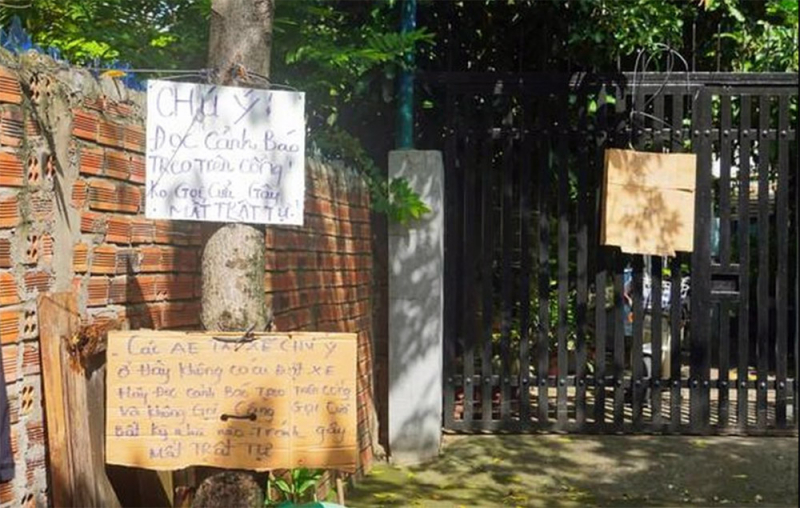 CHÚ Ý!
ĐỌC Cảnh Báo
TREO TRÊN CỔNG!
Ko Gọi Cửa Gây
MẤT TRẬT TỰ!
Các AE TÀI XẾ CHÚ Ý
Ở Đây Không có ai Đặt XE
Hãy Đọc cảnh Báo TREO TRÊN CỔNG
Và Không Gọi Cổng Gọi Cửa
Bất Kỳ nhà nào Tránh gây
MẤT TRẬT TỰ